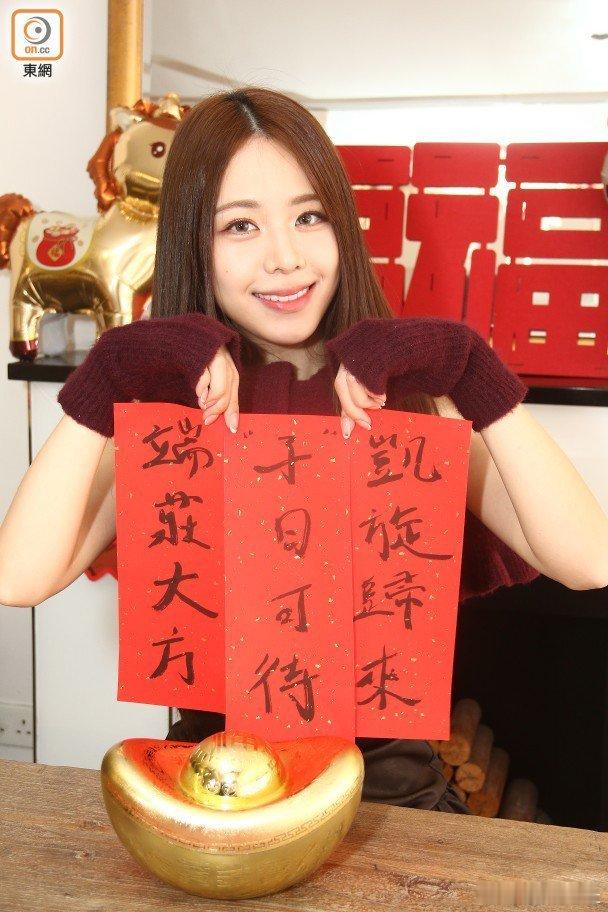 on.cc
東網
凱旋歸來
"子"日可待
端莊大方